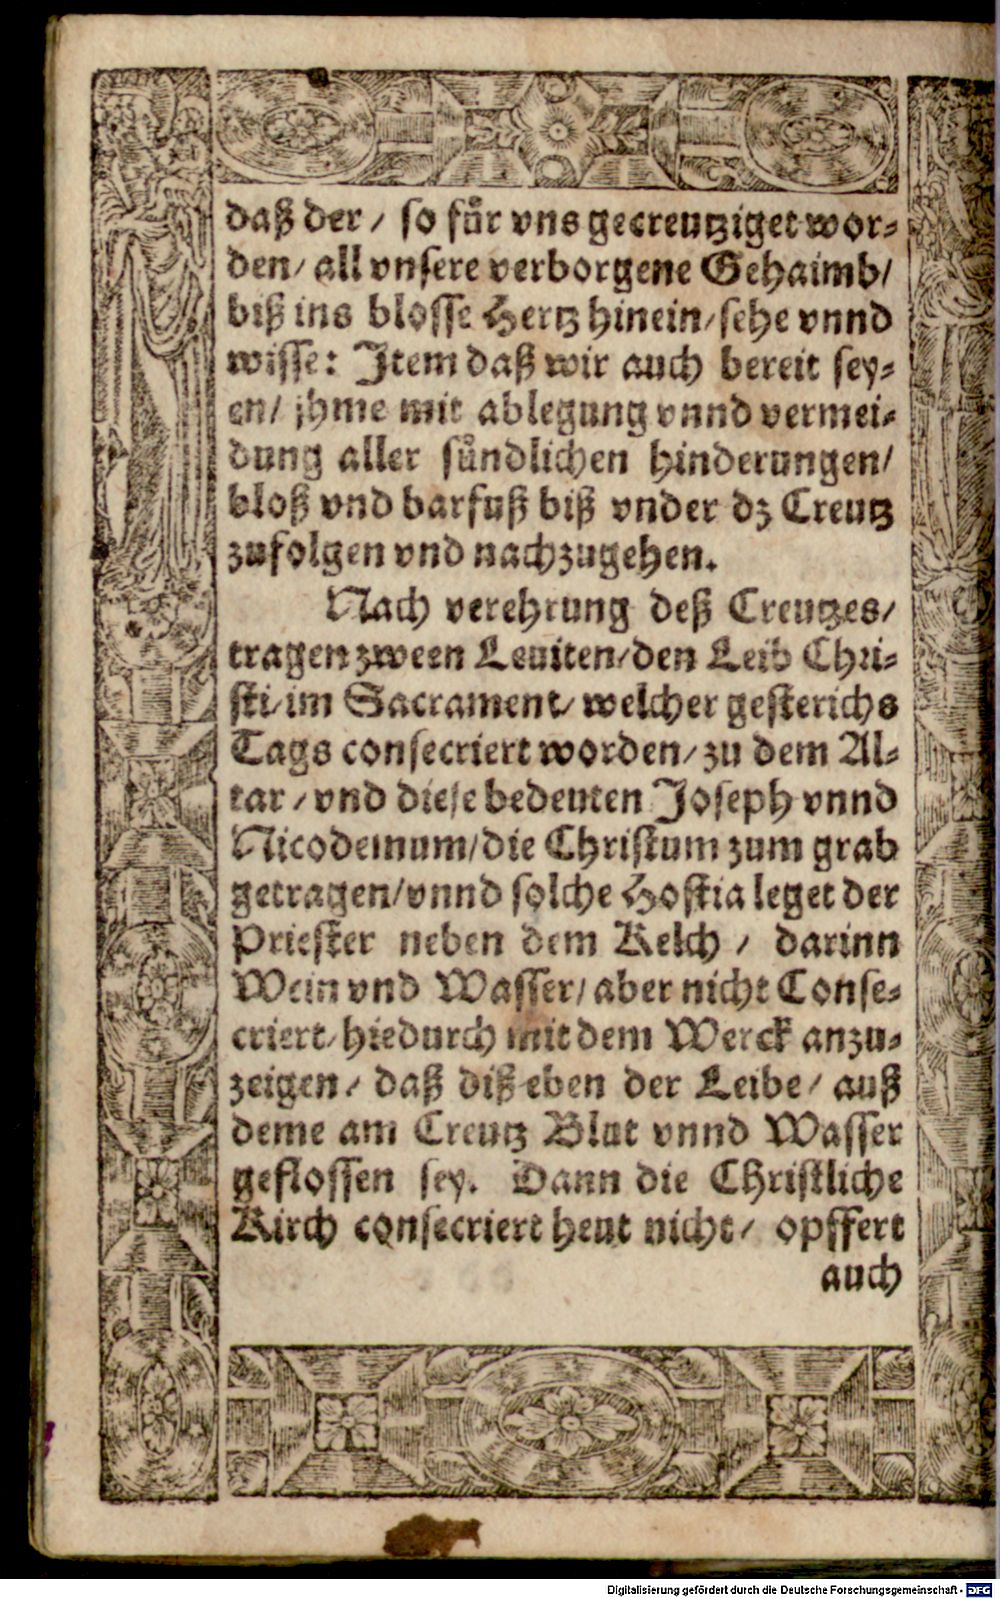 daß der / so für vns gecreutziget wor-
den / all vnsere verborgene Gehaimb /
biß ins blosse Hertz hinein / sehe vnnd
wisse: Item daß wir auch bereit sey-
en / jhme mit ablegung vnnd vermei-
dung aller sündlichen hinderungen /
bloß vnd barfuß biß vnder dz Creutz
zufolgen vnd nachzugehen.
Nach verehrung deß Creutzes /
tragen zween Leuiten / den Leib Chri-
sti / im Sacrament / welcher gesterichs
Tags consecriert worden / zu dem Al-
tar / vnd diese bedeuten Joseph vnnd
Nicodemum / die Christum zum grab
getragen / vnnd solche Hostia leget der
Priester neben dem Kelch / darinn
Wein vnd Wasser / aber nicht Conse-
criert / hiedurch mit dem Werck anzu-
zeigen / daß diß eben der Leibe / auß
deme am Creutz Blut vnnd Wasser
geflossen sey. Dann die Christliche
Kirch consecriert heut nicht / opffert
auch
Digitalisierung gefördert durch die Deutsche Forschungsgemeinschaft - DFG